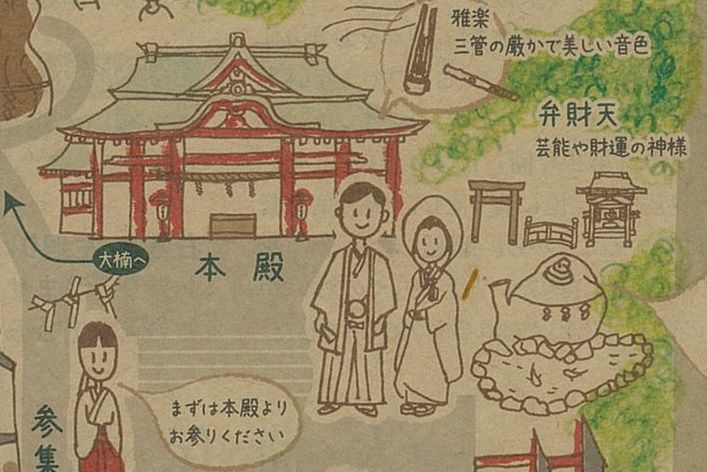 雅楽
三管の厳かで美しい音色
弁財天
芸能や財運の神様
大楠へ
本殿
まずは本殿より
お参りください
参集